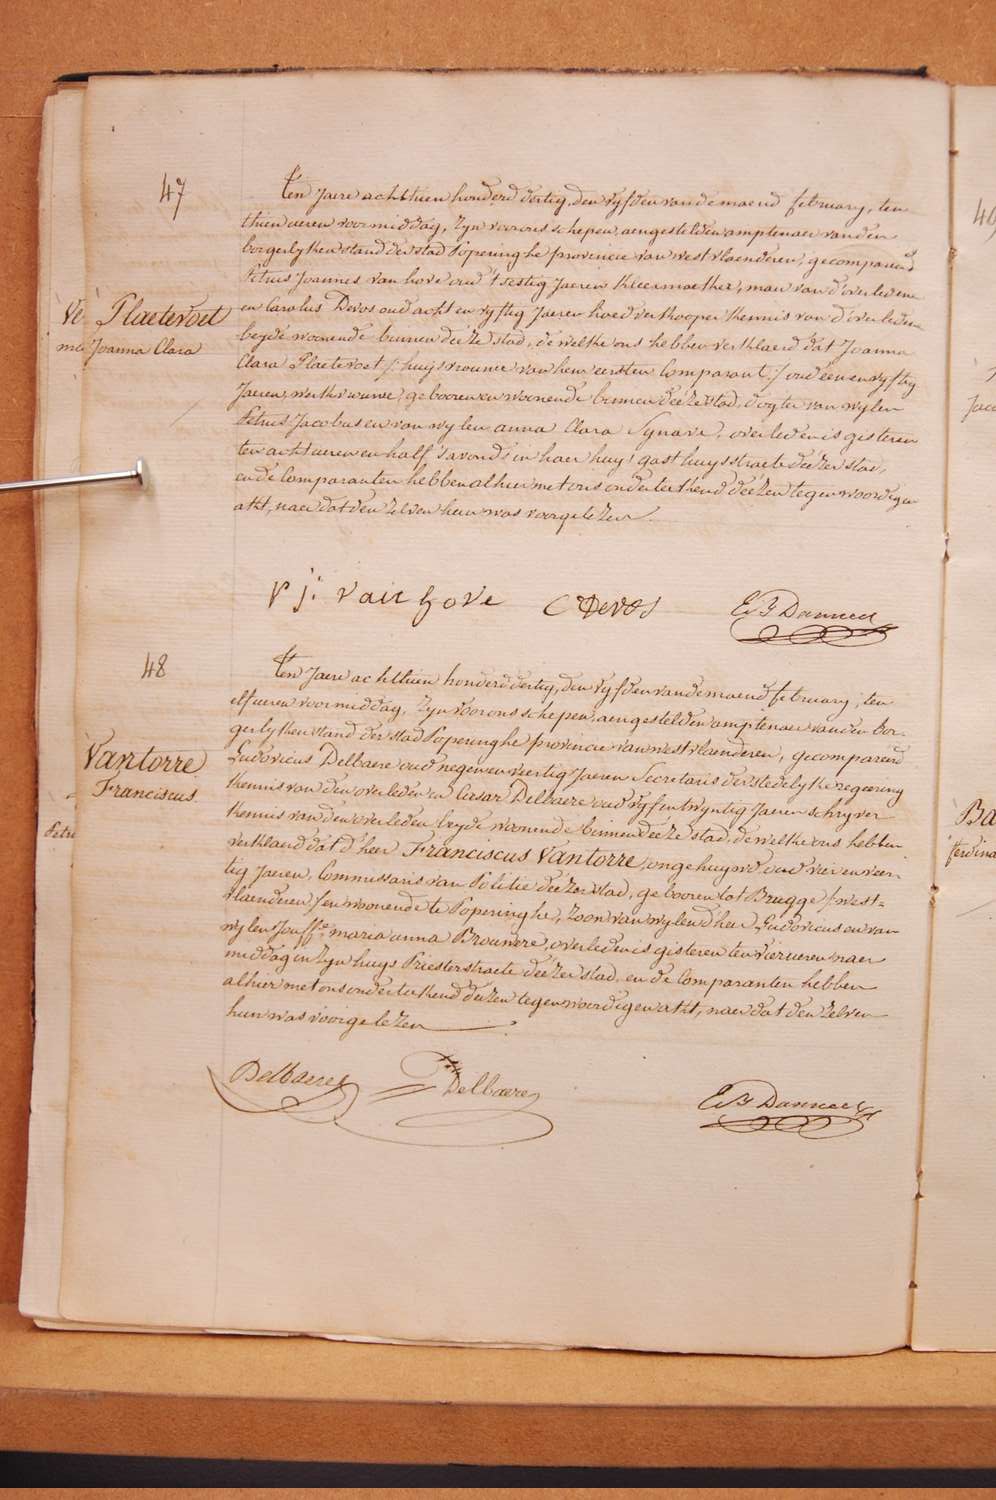 47
Ten Jaere achthien honderd dertig, den vyfden van de maend february, ten
thien ueren voormiddag, zyn voor ons schepen, aengestelden amptenaer van den
borgerlyken stand der stad Poperinghe provincie van westvlaenderen, gecompareerd
Petrus Joannes van hove oud 't sestig Jaeren kleermaeker, man van d'overledene
Plaetevoet
en Carolus Devos oud acht en vyftig Jaeren hoedverkooper kennis van d'overledene
Joanna Clara
beyde woonende binnen deeze stad, de welke ons hebben verklaerd dat Joanna
Clara Plaetevoet /: huysvrouwe van hem eersten Comparant :/ oud een en vyftig
Jaeren, werkvrouwe, gebooren en woonende binnen deeze stad, dogter van wylen
Petrus Jacobus en van wylen anna Clara Synave, overleden is gisteren
ten acht ueren en half s'avonds in haer huys gasthuysstraete deezer stad,
en de Comparanten hebben alhier met ons onderteekend deezen tegenwoordigen
akt, naer dat den zelven hun was voorgelezen.
P j: van hove C Devos
48
Ten Jaere achtthien honderd dertig, den vyfden van de maend february, ten
elf ueren voormiddag, zyn voor ons schepen, aengestelden amptenaer van den bor-
gerlyken stand der stad Poperinghe provincie van westvlaenderen, gecompareerd
Vantorre
Ludovicus Delbaere oud negen en veertig Jaeren Secretaris der stedelyke regeering
Franciscus
kennis van den overleden en Cæsar Delbaere oud vyf en twyntig Jaeren schryver
kennis van den overleden beyde woonende binnen deeze stad, de welke ons hebben
verklaerd dat d'heer Franciscus Vantorre, ongehuywd, oud vier en veer-
tig Jaeren, Commissaris van Politie deezer stad, gebooren tot Brugge /west=
vlaenderen/ en woonende te Poperinghe, zoon van wylen d'heer Ludovicus en van
wylen Jouffe. maria anna Brouwere, overleden is gisteren ten vier ueren naer
middag in zyn huys Priesterstraete deezer stad, en de Comparanten hebben
alhier met ons onderteekend deezen tegenwoordigen akt, naer dat den zelven
hun was voorgelezen
Delbaere Delbaere